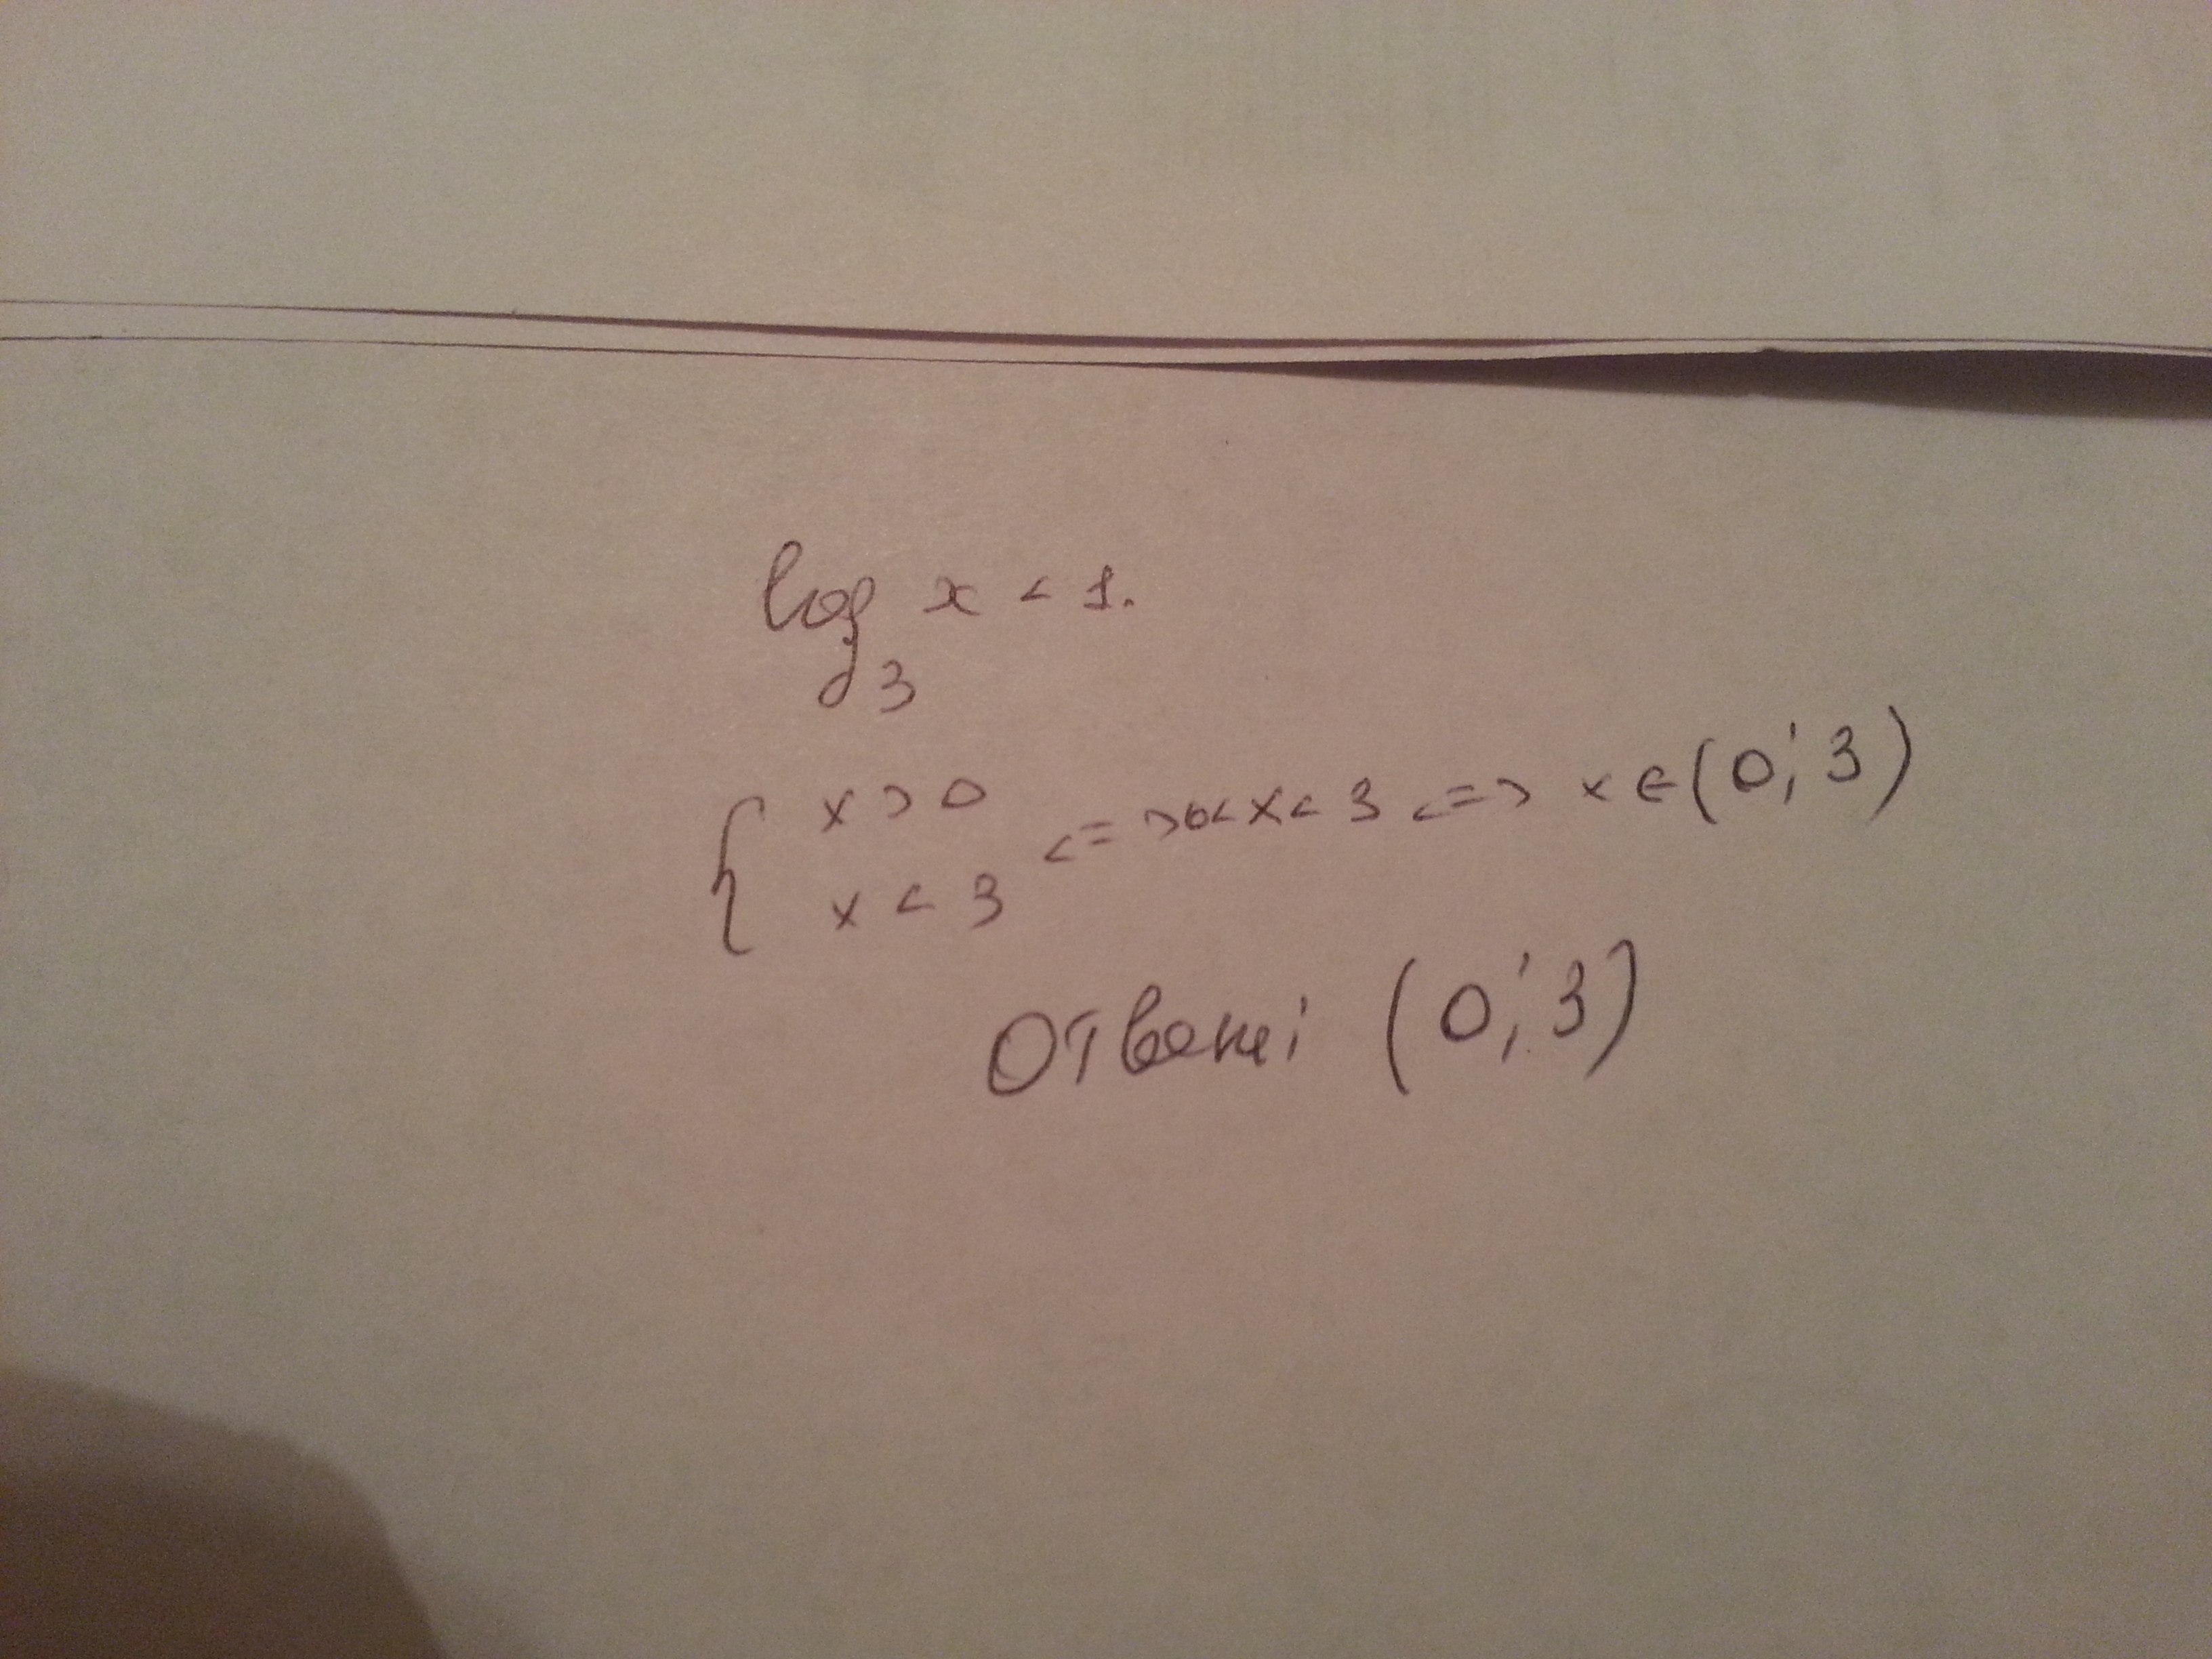 log₃ x < 1.
{ x > 0
x < 3 <=> 0 < x < 3 <=> x ∈ (0; 3)
Ответ: (0; 3)